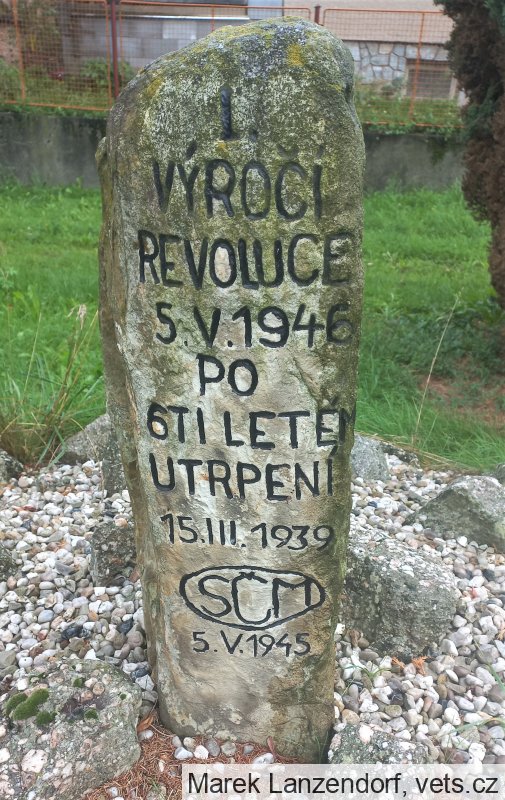 I.
VÝROČÍ
REVOLUCE
5.V.1946
PO
6TI LETÉM
UTRPENÍ
15.III.1939
SČM
5.V.1945
Marek Lanzendorf, vets.cz